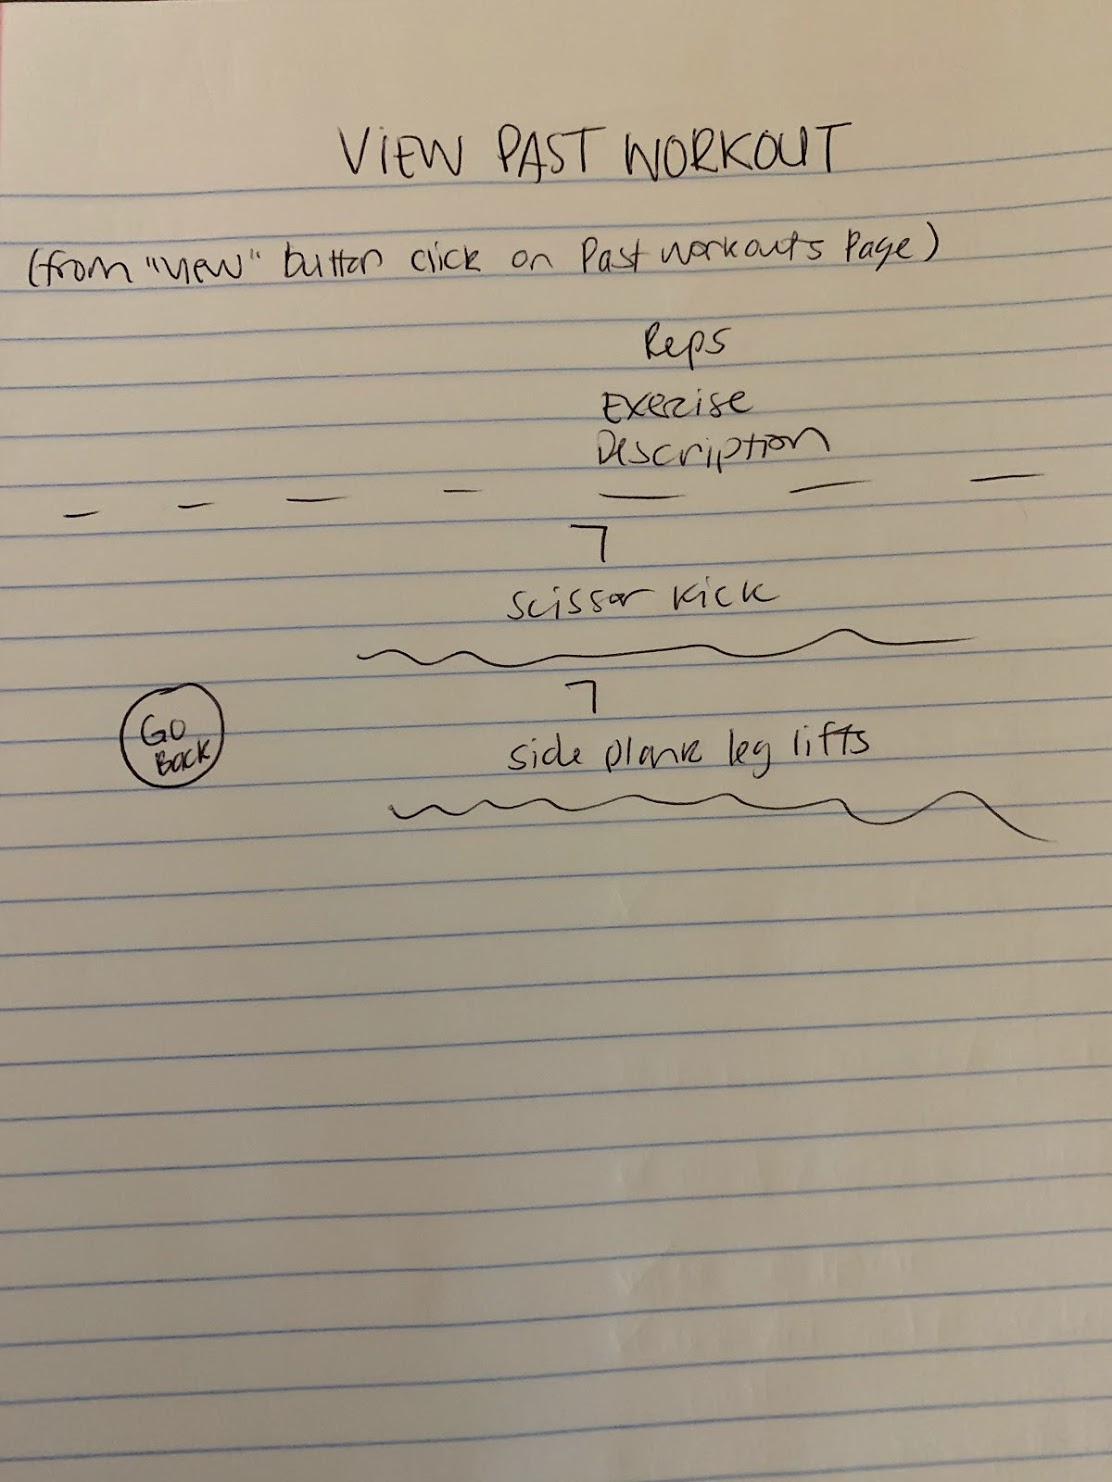 VIEW PAST WORKOUT
(from "view" button click on Past workouts Page)
Reps
Exercise
Description
7
scissor kick
7
Go
Back
side plank leg lifts